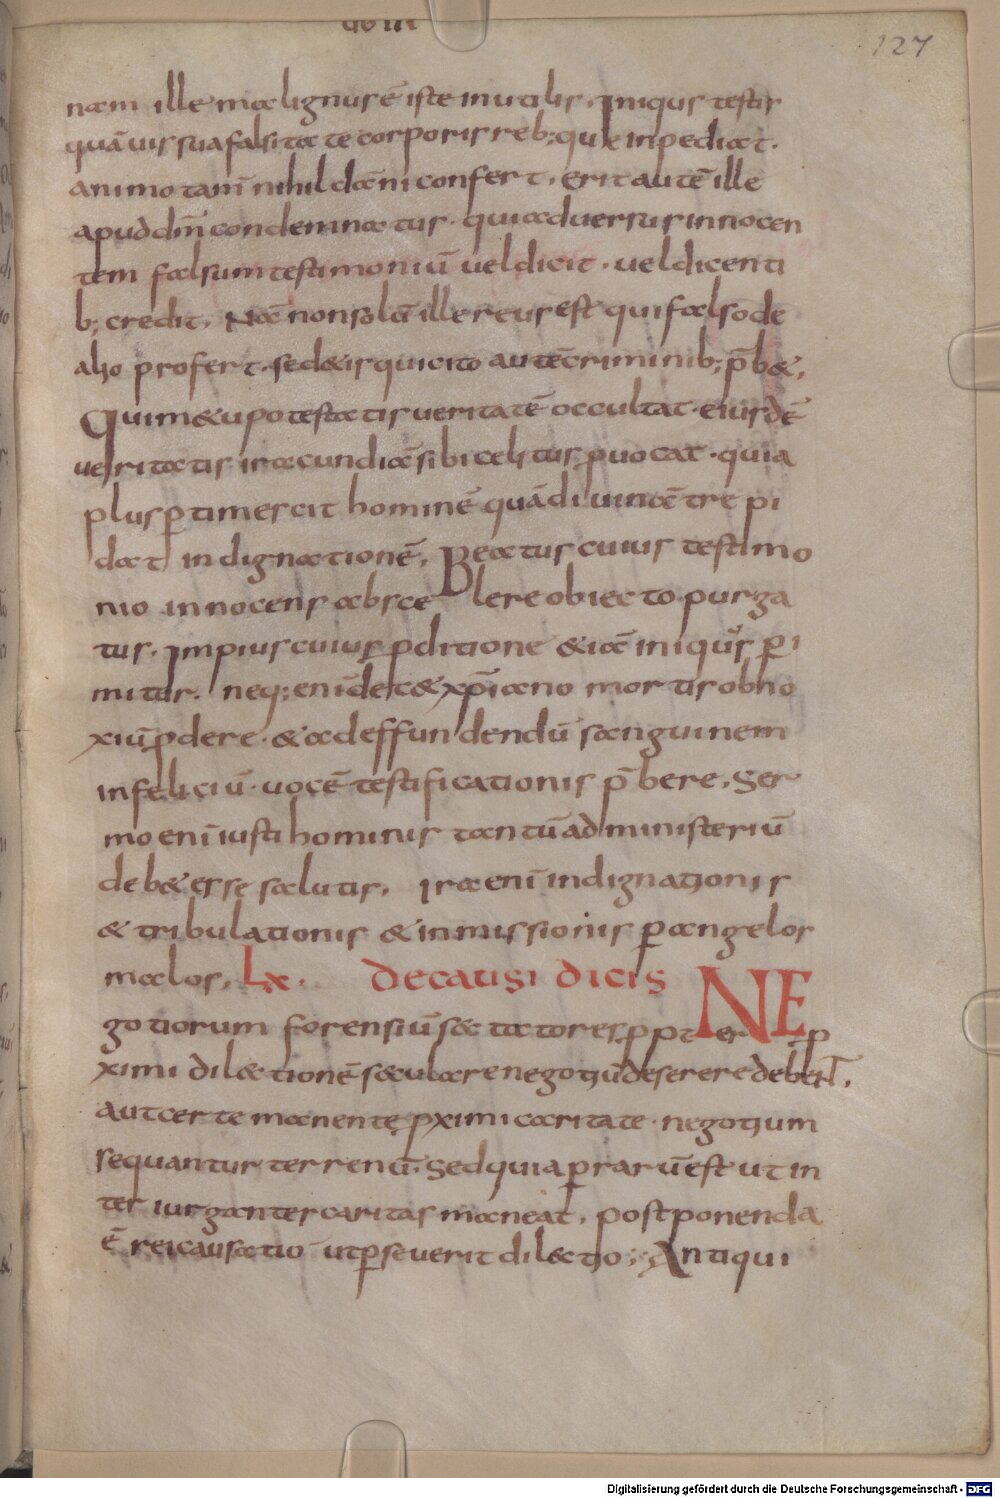 127
nam ille malignus ē iste inutilis. Iniqus testis
quā uis sua falsitate corporis reb; quæ inpediat.
animo tam̄ nihil dāni confert. erit autē ille
apud dm̄ condemnatus. qui aduersus innocen
tem falsum testimoniū uel dicit. uel dicenti
b; credit. Nā non solū ille reus est qui falsō de
alio profert. sed & is qui cito autē criminib; p̄b&.
Qui m&u potestatis ueritatē occultat. eiusdē
ueritatis iracundiā sibi celitus ꝓuocat. quia
plus ꝑtimescit hominē quā diuinā trepi
dat indignationē. Beatus cuius testimo
nio innocens ab scelere obiecto purga
tur. Impius cuius ꝓditione &iā iniqus ꝑi
mitur. neq; enī dec& xp̄iano mortis obno
xiū ꝓdere. & ad effundendū sanguinem
infeliciū. uocē testificationis p̄bere. Ser
mo enī iusti hominis tantū administeriū
deb& esse salutis. Ira enī indignationis
& tribulationis & inmissionis ꝑ angelos
malos. Lx. De causidicis NE
gotiorum forensiū sæctatores ꝓpter ꝓ
ximi dilætionē sæculare negotiū deserere debeN̄T.
aut certe manente ꝓximi caritate. negotium
sequantur terrenū. Sed quia ꝑrarū est ut in
ter iurgantes caritas maneat. postponenda
ē rei causatio ut ꝑseuerit dilætio; Antiqui
Digitalisierung gefördert durch die Deutsche Forschungsgemeinschaft - DFG